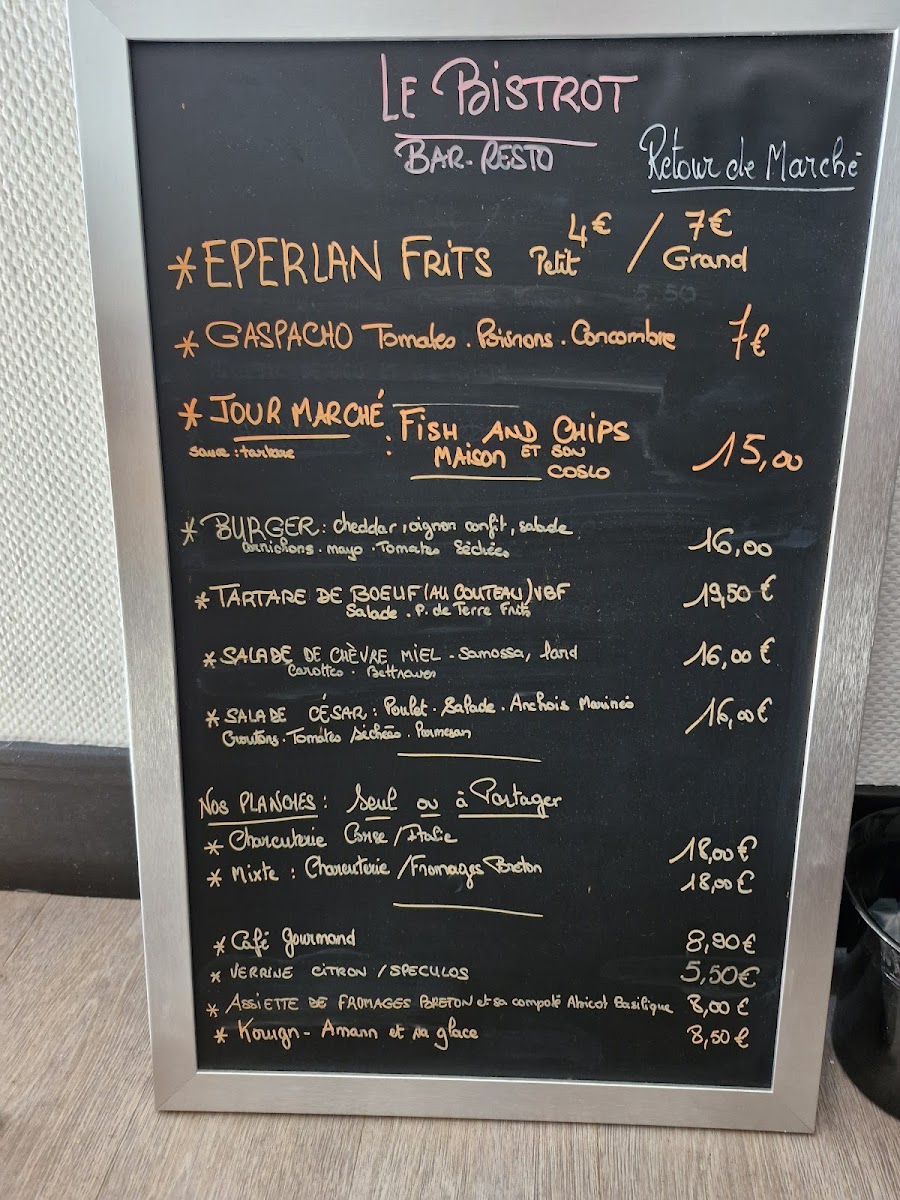 LE BISTROT
BAR-RESTO
Retour de Marché
* EPERLAN FRITS Petit 4€ / 7€ Grand
5,50
* GASPACHO Tomates . Poivrons . Concombre 7€
* JOUR MARCHÉ : FISH AND CHIPS
sauce : tartare MAISON ET SON COSLO 15,00
* BURGER : cheddar, oignon confit, salade
cornichons . mayo . Tomates Séchées 16,00
* TARTARE DE BOEUF (AU COUTEAU) VBF 19,50 €
Salade . P. de Terre Frits
* SALADE DE CHÈVRE MIEL - Samossa, lard 16,00 €
Carottes .
* SALADE CÉSAR : Poulet . Salade . Anchois Marinés 16,00€
Croutons . Tomates séchées . Parmesan
NOS PLANCHES : Seul ou à Partager
* Charcuterie Corse / Italie 18,00€
* Mixte : Charcuterie / Fromages Breton 18,00€
* Café gourmand 8,90€
* VERRINE CITRON / SPECULOS 5,50€
* ASSIETTE DE FROMAGES BRETON et sa compoté Abricot Basilique 8,00 €
* Kouign - Amann et sa glace 8,50€